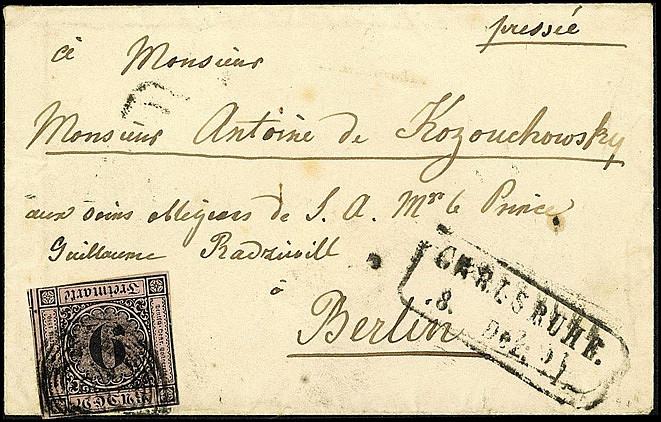 pressée
à Monsieur
Monsieur Antoine de Kozouchowsky
aux soins obligeans de S. A. Mr le Prince
Guillaume Radziwill
à
Berlin
CARLSRUHE.
8. Dez. 51
Freimarke
6
BADEN